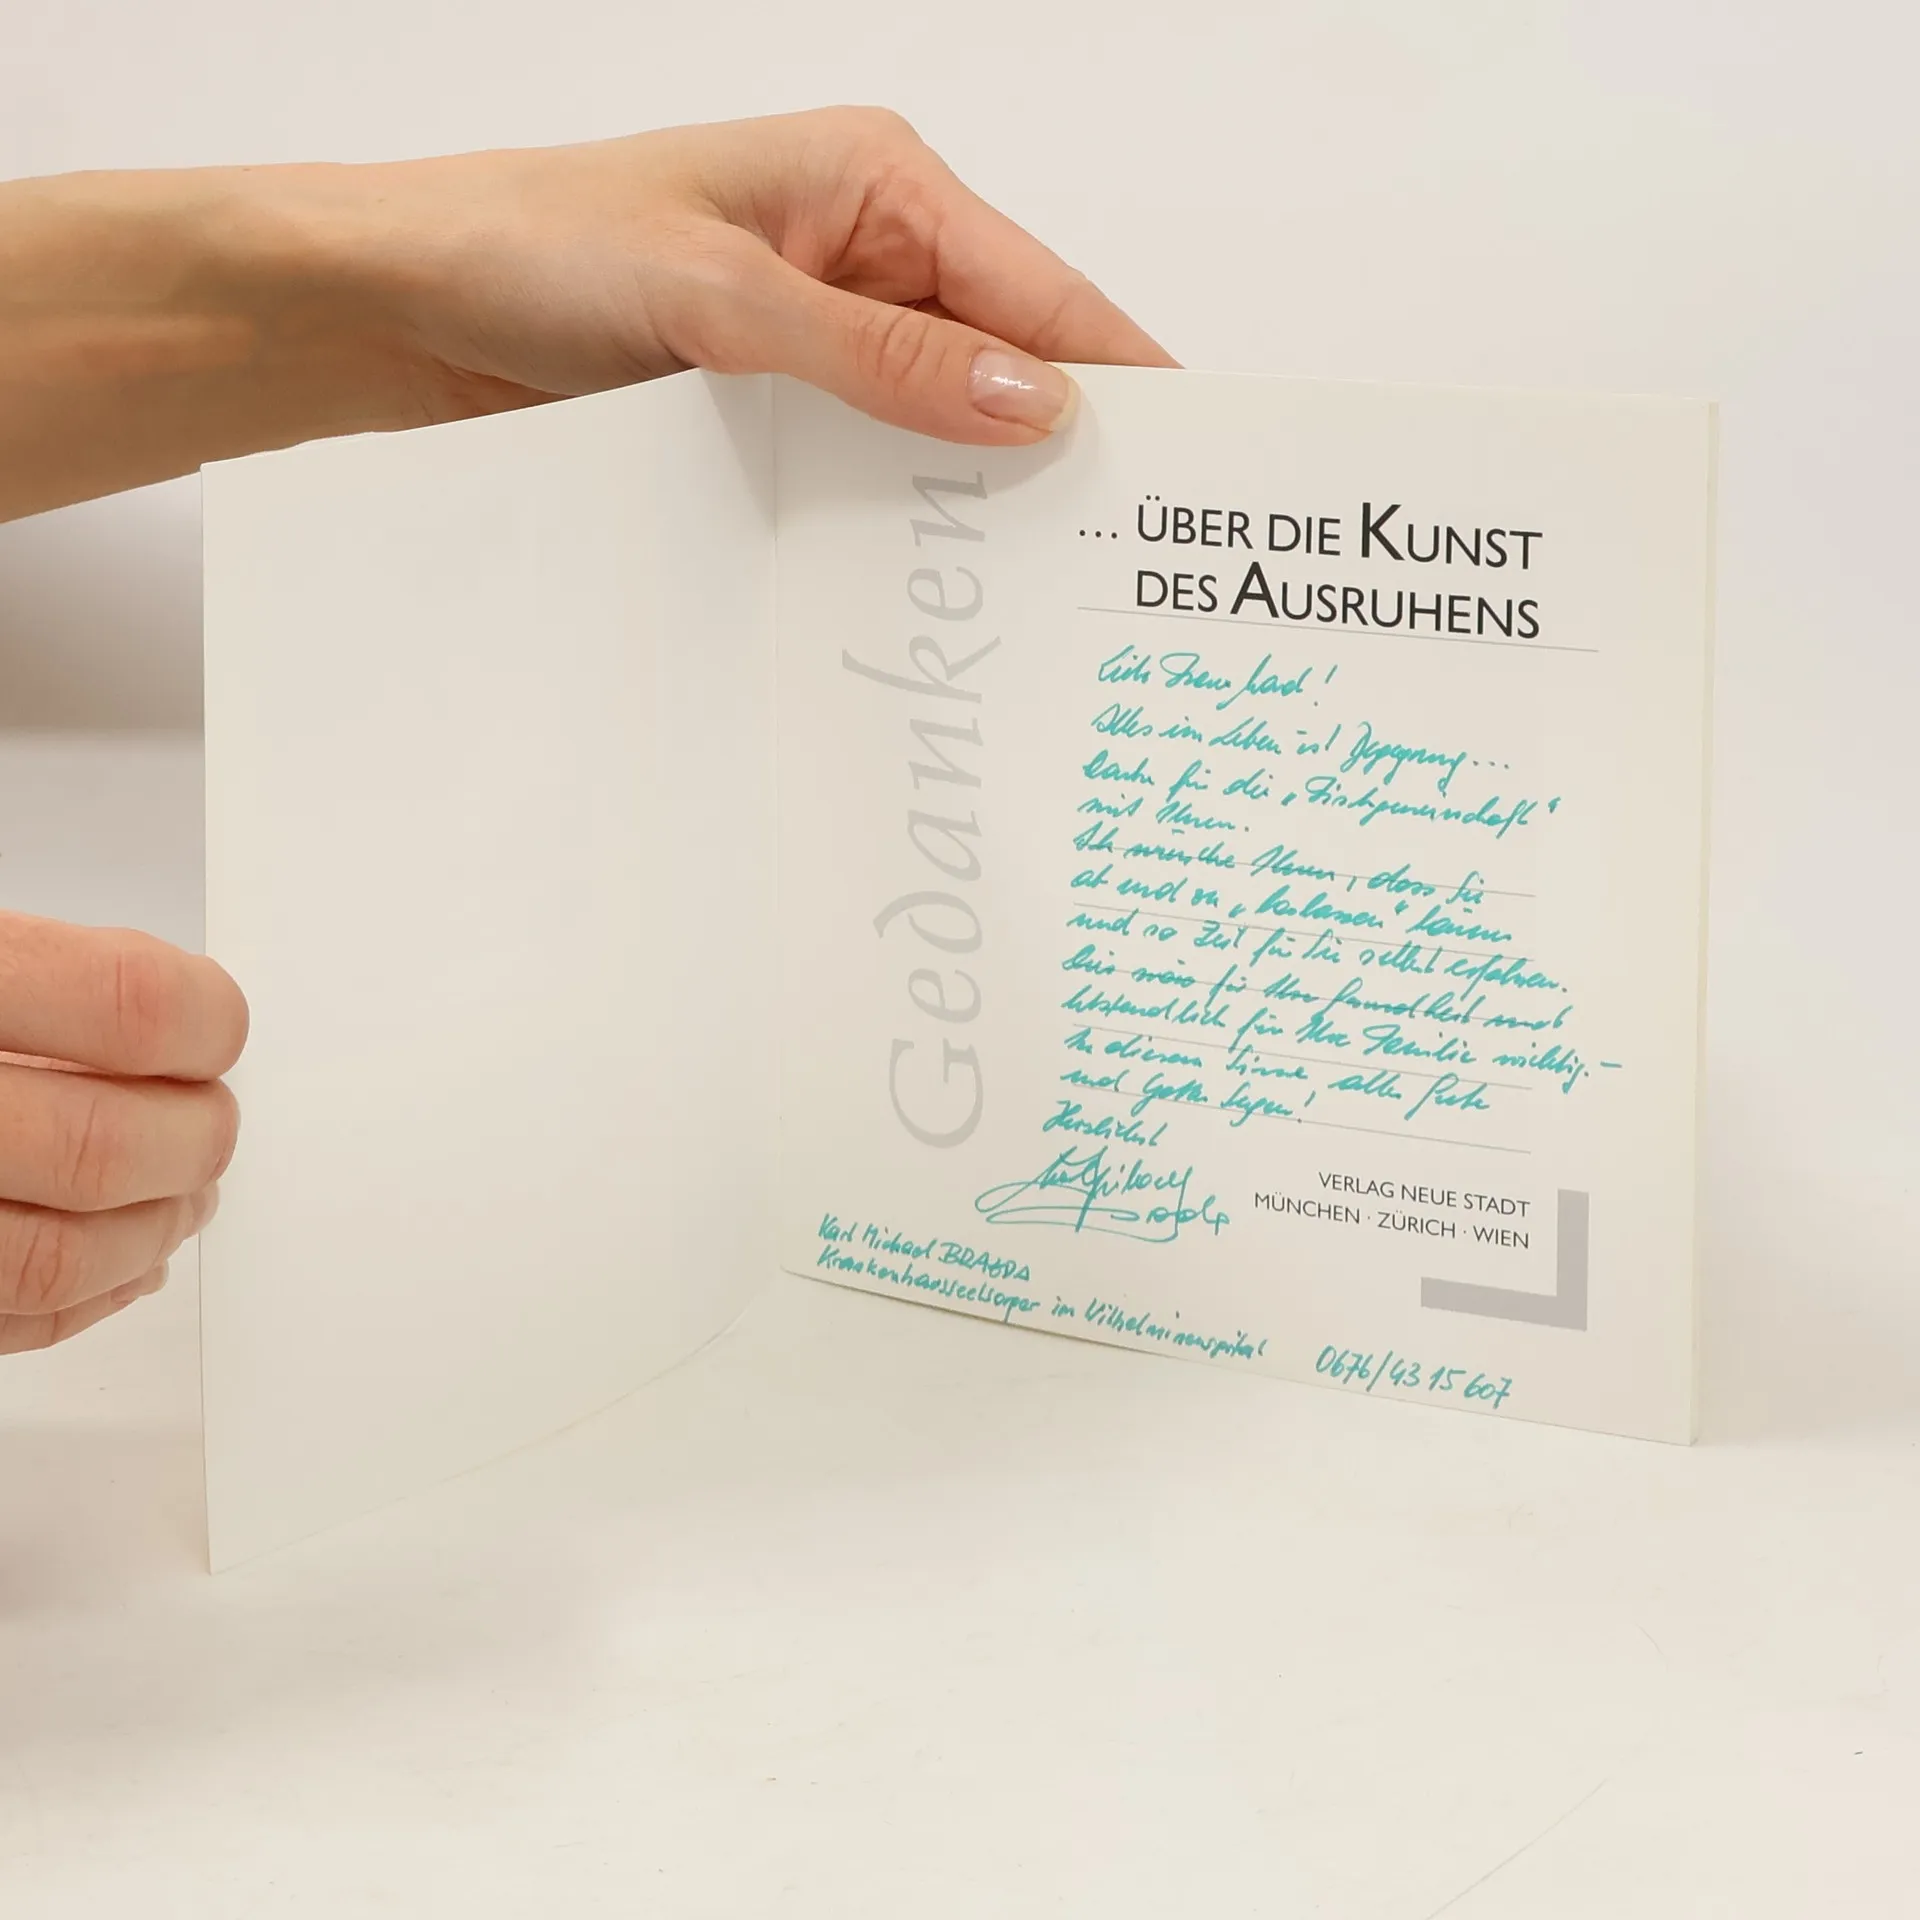 Gedanken
... ÜBER DIE KUNST
DES AUSRUHENS
Liebe Frau
Alles im Leben ist Begegnung...
Danke für die „Tischgemeinschaft“
mit Ihnen.
Ich wünsche Ihnen, dass Sie
ab und zu „loslassen“ können
und so Zeit für Sie selbst erfahren.
Dies wäre für Ihre Gesundheit und
letztendlich für Ihre Familie wichtig. –
In diesem Sinne, alles Gute
und Gottes Segen!
Herzlichst
VERLAG NEUE STADT
MÜNCHEN · ZÜRICH · WIEN
Karl Michael BRAZDA
Krankenhausseelsorger im Wilhelminenspital
0676/43 15 607